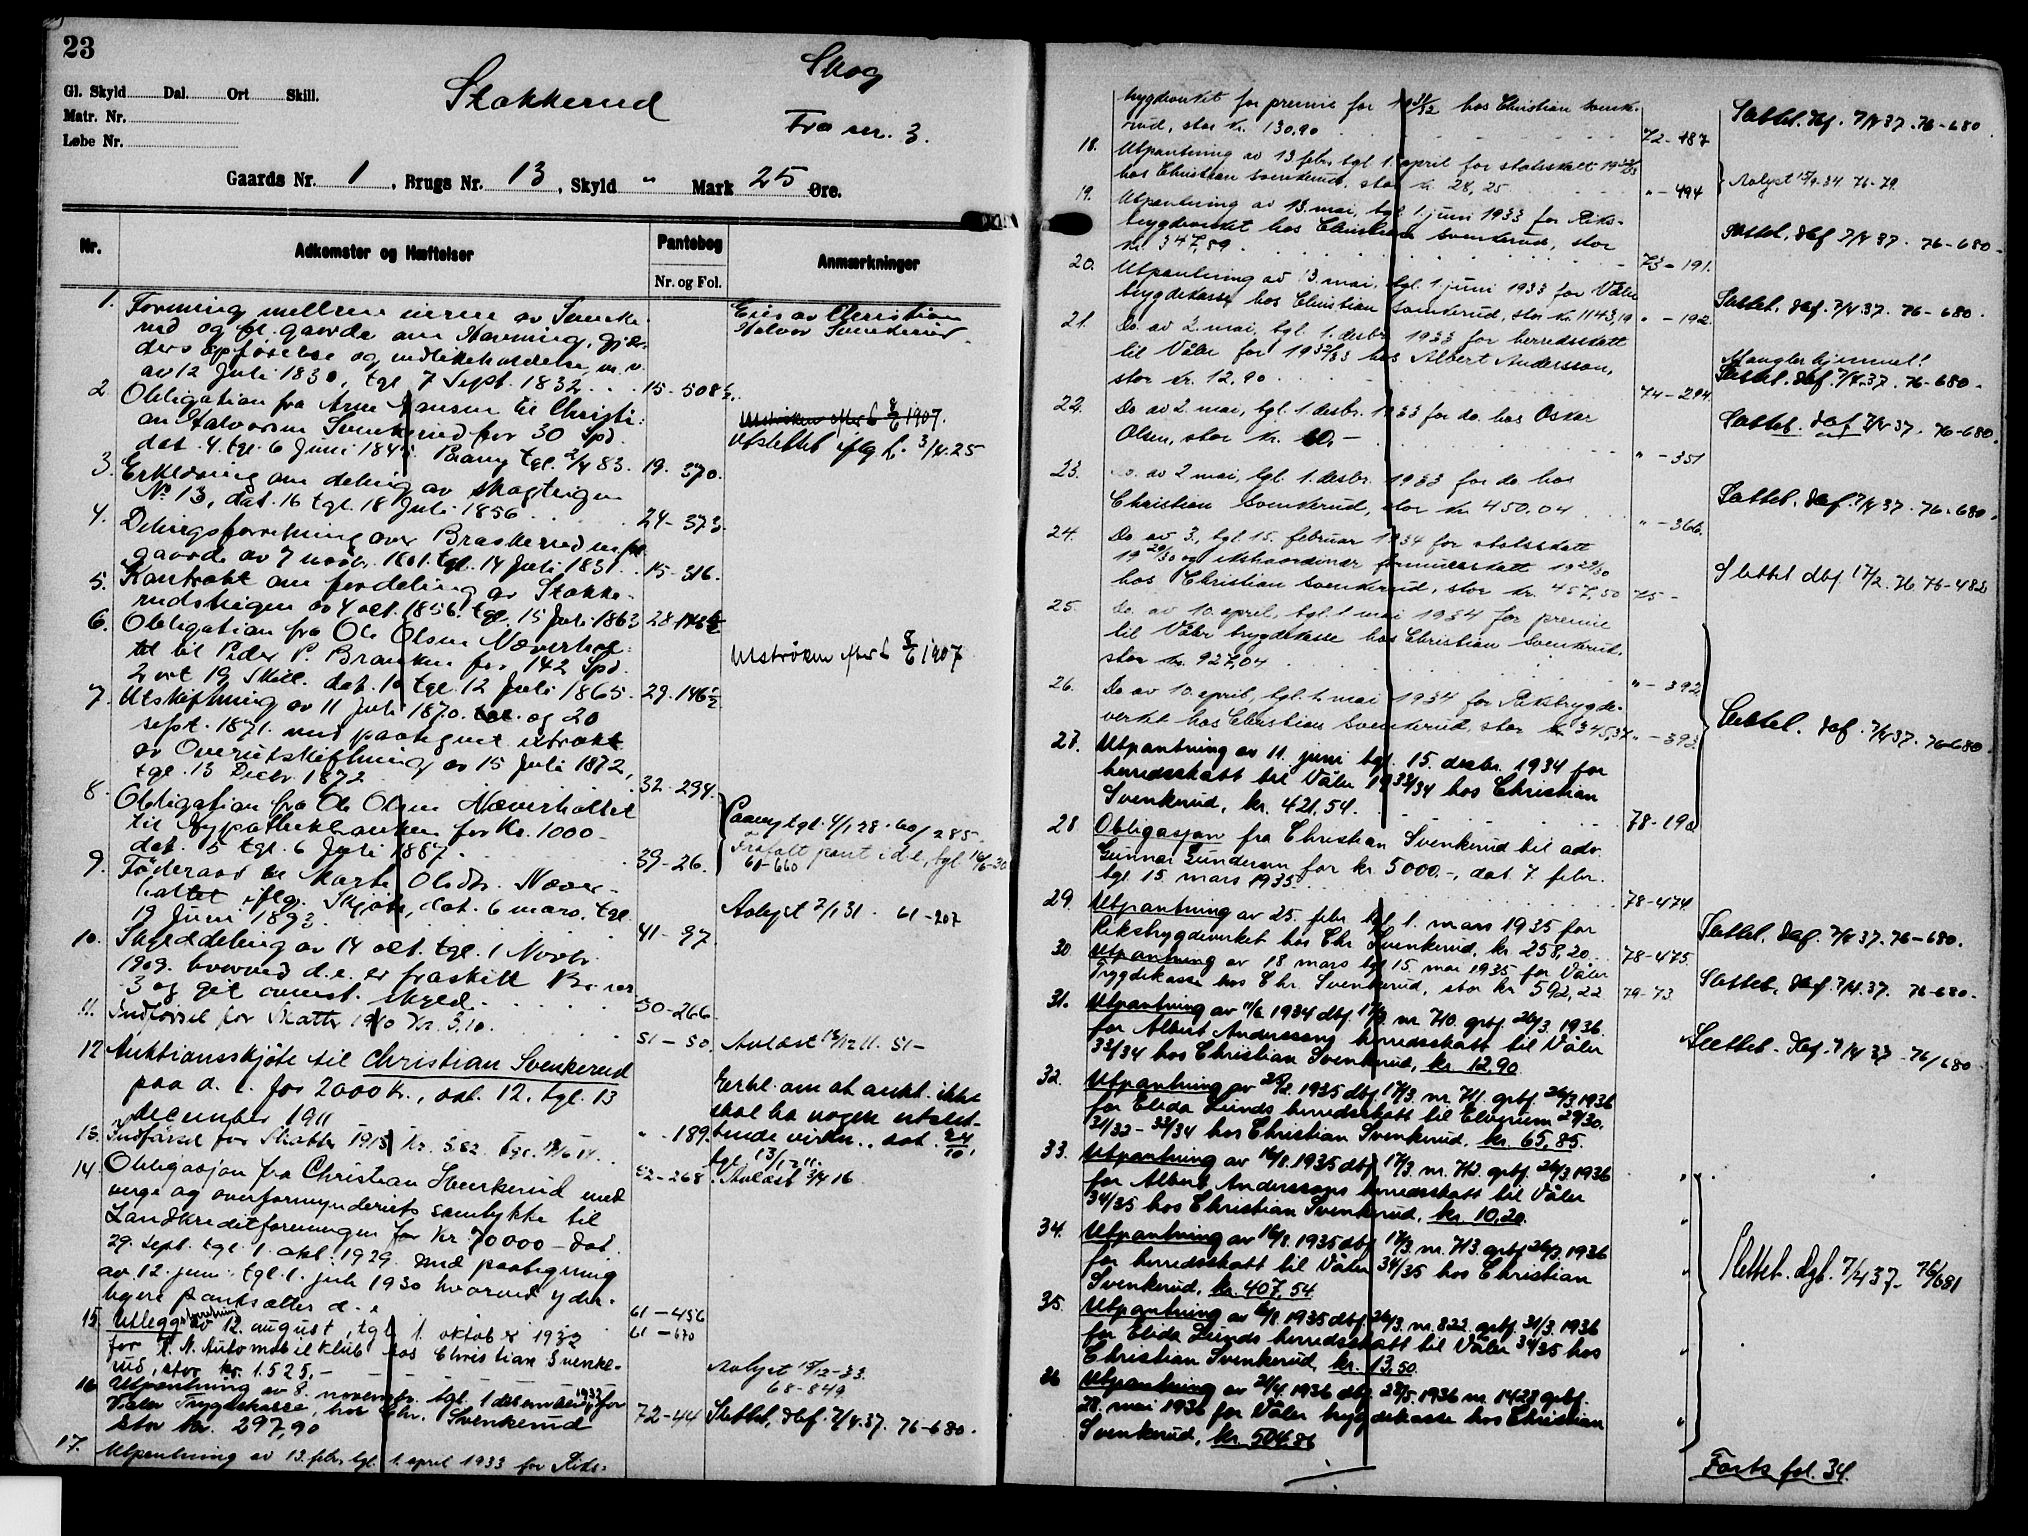 23
Skog
Gl. Skyld Dal. Ort Skill.
Stokkerud
Matr. Nr.
Fra nr. 3.
Løbe Nr.
Gaards Nr. 1, Brugs Nr. 13, Skyld " Mark 25 Øre.
Nr.
Adkomster og Hæftelser
Pantebog
Nr. og Fol.
Anmærkninger
1. Forening mellem eierne av Svenke-
rud og fl. gaarde om Havning, gjær-
ders opførelse og vedlikeholdelse m. v.
av 12 Juli 1830, tgl. 7 Sept. 1832 15-508
Eies av Christian
Halvor Svenkerud.
2 Obligation fra Arne Hansen til Christi-
an Halvorsen Svenkerud for 30 Spd.
dat. 4. tgl. 6 Juni 184 Paany tgl. 2/4 83. 19. 370.
Utstrøken efter L 8/6 1907.
Utslettet iflg L. 3/4.25
3. Erklæring om deling av skogteigen
No 13, dat. 16 tgl. 18 Juli 1856 24-373
4. Delingsforretning over Braskerud m. fl.
gaarde av 7 novbr. 1801. tgl. 14 Juli 1831. 15-316.
5. Kontrakt om fordeling av Stokke-
rudsteigen av 4 oct. 1856. tgl. 15 Juli 1863 28-146
6. Obligation fra Ole Olsen Næverhol-
tet til Peder P. Branken for 142 Spd.
2 ort 19 Skill. dat. 10 tgl. 12 Juli 1865. 29-146
Utstrøken efter L 8/6 1907
7. Utskiftning av 11 Juli 1870. og 20
sept. 1871. med paategnet extrakt
av Overutskiftning av 15 Juli 1872,
tgl. 13 Decbr. 1872 32-294.
8. Obligation fra Ole Olsen Næverholtet
til Hypothekbanken for Kr. 1000-
dat. 5 tgl. 6 Juli 1887. 39-26.
Paany tgl. 4/1 28. 60/285.
Frafalt pant i d.e., tgl. 16/6-30
60-660
9. Føderaad til Marte Olsdtr. Næver-
holtet iflg. Skjøte, dat. 6 mars, tgl.
19 Juni 1893 41-97
Avlyst 2/1 31. 61-207
10. Skylddeling av 14 oct. tgl. 1 Novbr.
1909. hvorved d.e. er fraskilt Br. nr.
3 og git ovenst. skyld. 50-266
11. Indførsel for Skatter 1910 Kr. 3,10. 51-50.
Avlæst 13/12 11. 51-
12 Auktionsskjøte til Christian Svenkerud
paa d. e. for 2000 Kr., dat. 12, tgl. 13
december 1911 " - 189.
Erkl. om at aukt. ikke
skal ha nogen utslet-
tende virkn., dat. 24/10,
tgl. 13/12 11.
13. Indførsel for Skatter 1913 Kr. 5.82. Tgl. 19/6 14. 52-268.
Avlæst 3/4 16
14. Obligasjon fra Christian Svenkerud med
verge og overformynderiets samtykke til
Landkreditforeningen for Kr 70000 - dat.
29. sept. tgl. 1. okt. 1929. Med paategning
av 12. juni. tgl. 1. juli 1930 hvorved yder-
ligere pantsatter d. e 61-456
61-670
15. Utleggsforretning av 12. august, tgl. 1. oktober 1932
for K. N. Automobilklub hos Christian Svenke-
rud, stor kr. 1.525,-
Avlyst 15/12-33
68-849
16 Utpantning av 8. novembr. tgl. 1 desember 1932 for
Våler Trygdekasse, hos Chr. Svenkerud
stor kr. 297,90 72-44
Slettet, dbf. 7/4.37. 76-680.
17. Utpantning av 13. febr. tgl. 1. april 1933 for Riks-
trygdverket for premie for 1931/32 hos Christian Svenke-
rud, stor kr. 130.90 72-487
Slettet. dbf. 7/4 37. 76-680.
18. Utpantning av 13 febr. tgl. 1. april for statsskatt 1932/33
hos Christian Svenkerud, stor kr 28,25 " - 494
Avlyst 15/9.34 76-79.
19. Utpantning av 13. mai, tgl. 1. juni 1933 for Riks-
trygdeverket hos Christian Svenkerud, stor
kr. 347,89. 73-191.
Slettet, dbf 7/4 37. 76-680.
20. Utpantning av 13. mai, tgl. 1. juni 1933 for Våler
trygdekasse hos Christian Svenkerud, stor kr. 1143,19 " - 192
Slettet, dbf. 7/4.37. 76-680.
21. Do av 2. mai, tgl. 1. desbr. 1933 for herredsskatt
til Våler for 1932/33 hos Albert Andersson,
stor kr. 12.90 74-294
Mangler hjemmel!
Slettet. dbf. 7/4.37. 76-680.
22. Do av 2. mai, tgl. 1. desbr. 1933 for do hos Oskar
Olsen, stor kr. 60.- " - 351
Slettet. dbf 7/4 37. 76-680.
23. Do. av 2 mai, tgl. 1. desbr. 1933 for do hos
Christian Svenkerud, stor kr 450.04 " - 366.
Slettet. dbf. 7/4 37. 76-680.
24. Do av 3, tgl. 15. februar 1934 for statsskatt
1929/30 og ekstraordinær formuesskatt 1929/30
hos Christian Svenkerud, stor kr. 457,50 75-
Slettet dbf 17/2. 76 76-482
25. Do. av 10. april, tgl. 1 mai 1934 for premie
til Våler trygdekasse hos Christian Svenkerud,
stor kr. 927,04 " - 392
26. Do av 10. april, tgl. 1. mai 1934 for Rikstrygde-
verket hos Christian Svenkerud, stor kr 345,34 " - 393
Slettet. dbf. 7/4 37. 76-680
27. Utpantning av 11. juni tgl. 15. desbr. 1934 for
herredsskatt til Våler 1933/34 hos Christian
Svenkerud, kr. 421,54. 78-190
28 Obligasjon fra Christian Svenkerud til adv.
Gunnar Gundersen for kr. 5000.-, dat 7. febr.
tgl. 15. mars 1935 78-474
29. Utpantning av 25. febr. tgl. 1. mars 1935 for
Rikstrygdeverket hos Chr. Svenkerud, kr. 258,20 78-475.
Slettet. dbf. 7/4 37. 76-680.
30 Utpantning av 18 mars tgl 15. mai 1935 for Våler
Trygdekasse hos Chr. Svenkerud, stor kr 592,22 79-73
Slettet, dbf. 7/4.37. 76-680.
31. Utpantning av 11/6 1934 dbf. 17/3 nr. 710. grbf. 26/3. 1936
for Albert Anderssons herredsskatt til Våler
33/34 hos Christian Svenkerud, kr. 12.90
Slettet. dbf. 7/4 37. 76/680
32. Utpantning av 25/2. 1935 dbf. 17/3 nr. 711. grbf. 26/3 1936
for Elida Lunds herredsskatt til Elverum 29/30.
31/32 - 33/34 hos Christian Svenkerud. kr. 65,85.
33. Utpantning av 16/8. 1935 dbf. 17/3. nr. 712. grbf. 26/3 1936
for Albert Anderssons herredsskatt til Våler
34/35 hos Christian Svenkerud, kr. 10,20.
34. Utpantning av 16/8. 1935 dbf. 17/3. nr. 713. grbf. 26/3. 1936
for herredsskatt til Våler 34/35 hos Christian
Svenkerud, kr. 407,54
Slettet. dgb. 7/4 37- 76/681
35. Utpantning av 16/8. 1935 dbf. 26/3. nr. 822. grbf. 31/3. 1936
for Elida Lunds herredsskatt til Våler 34/35 hos
Christian Svenkerud, kr. 13,50.
36 Utpantning av 21/4. 1936 dbf. 28/5. 1936 nr. 1428 grbf.
28. mai 1936 for Våler trygdekasse hos Christian
Svenkerud, kr. 504.86
Forts fol. 34.